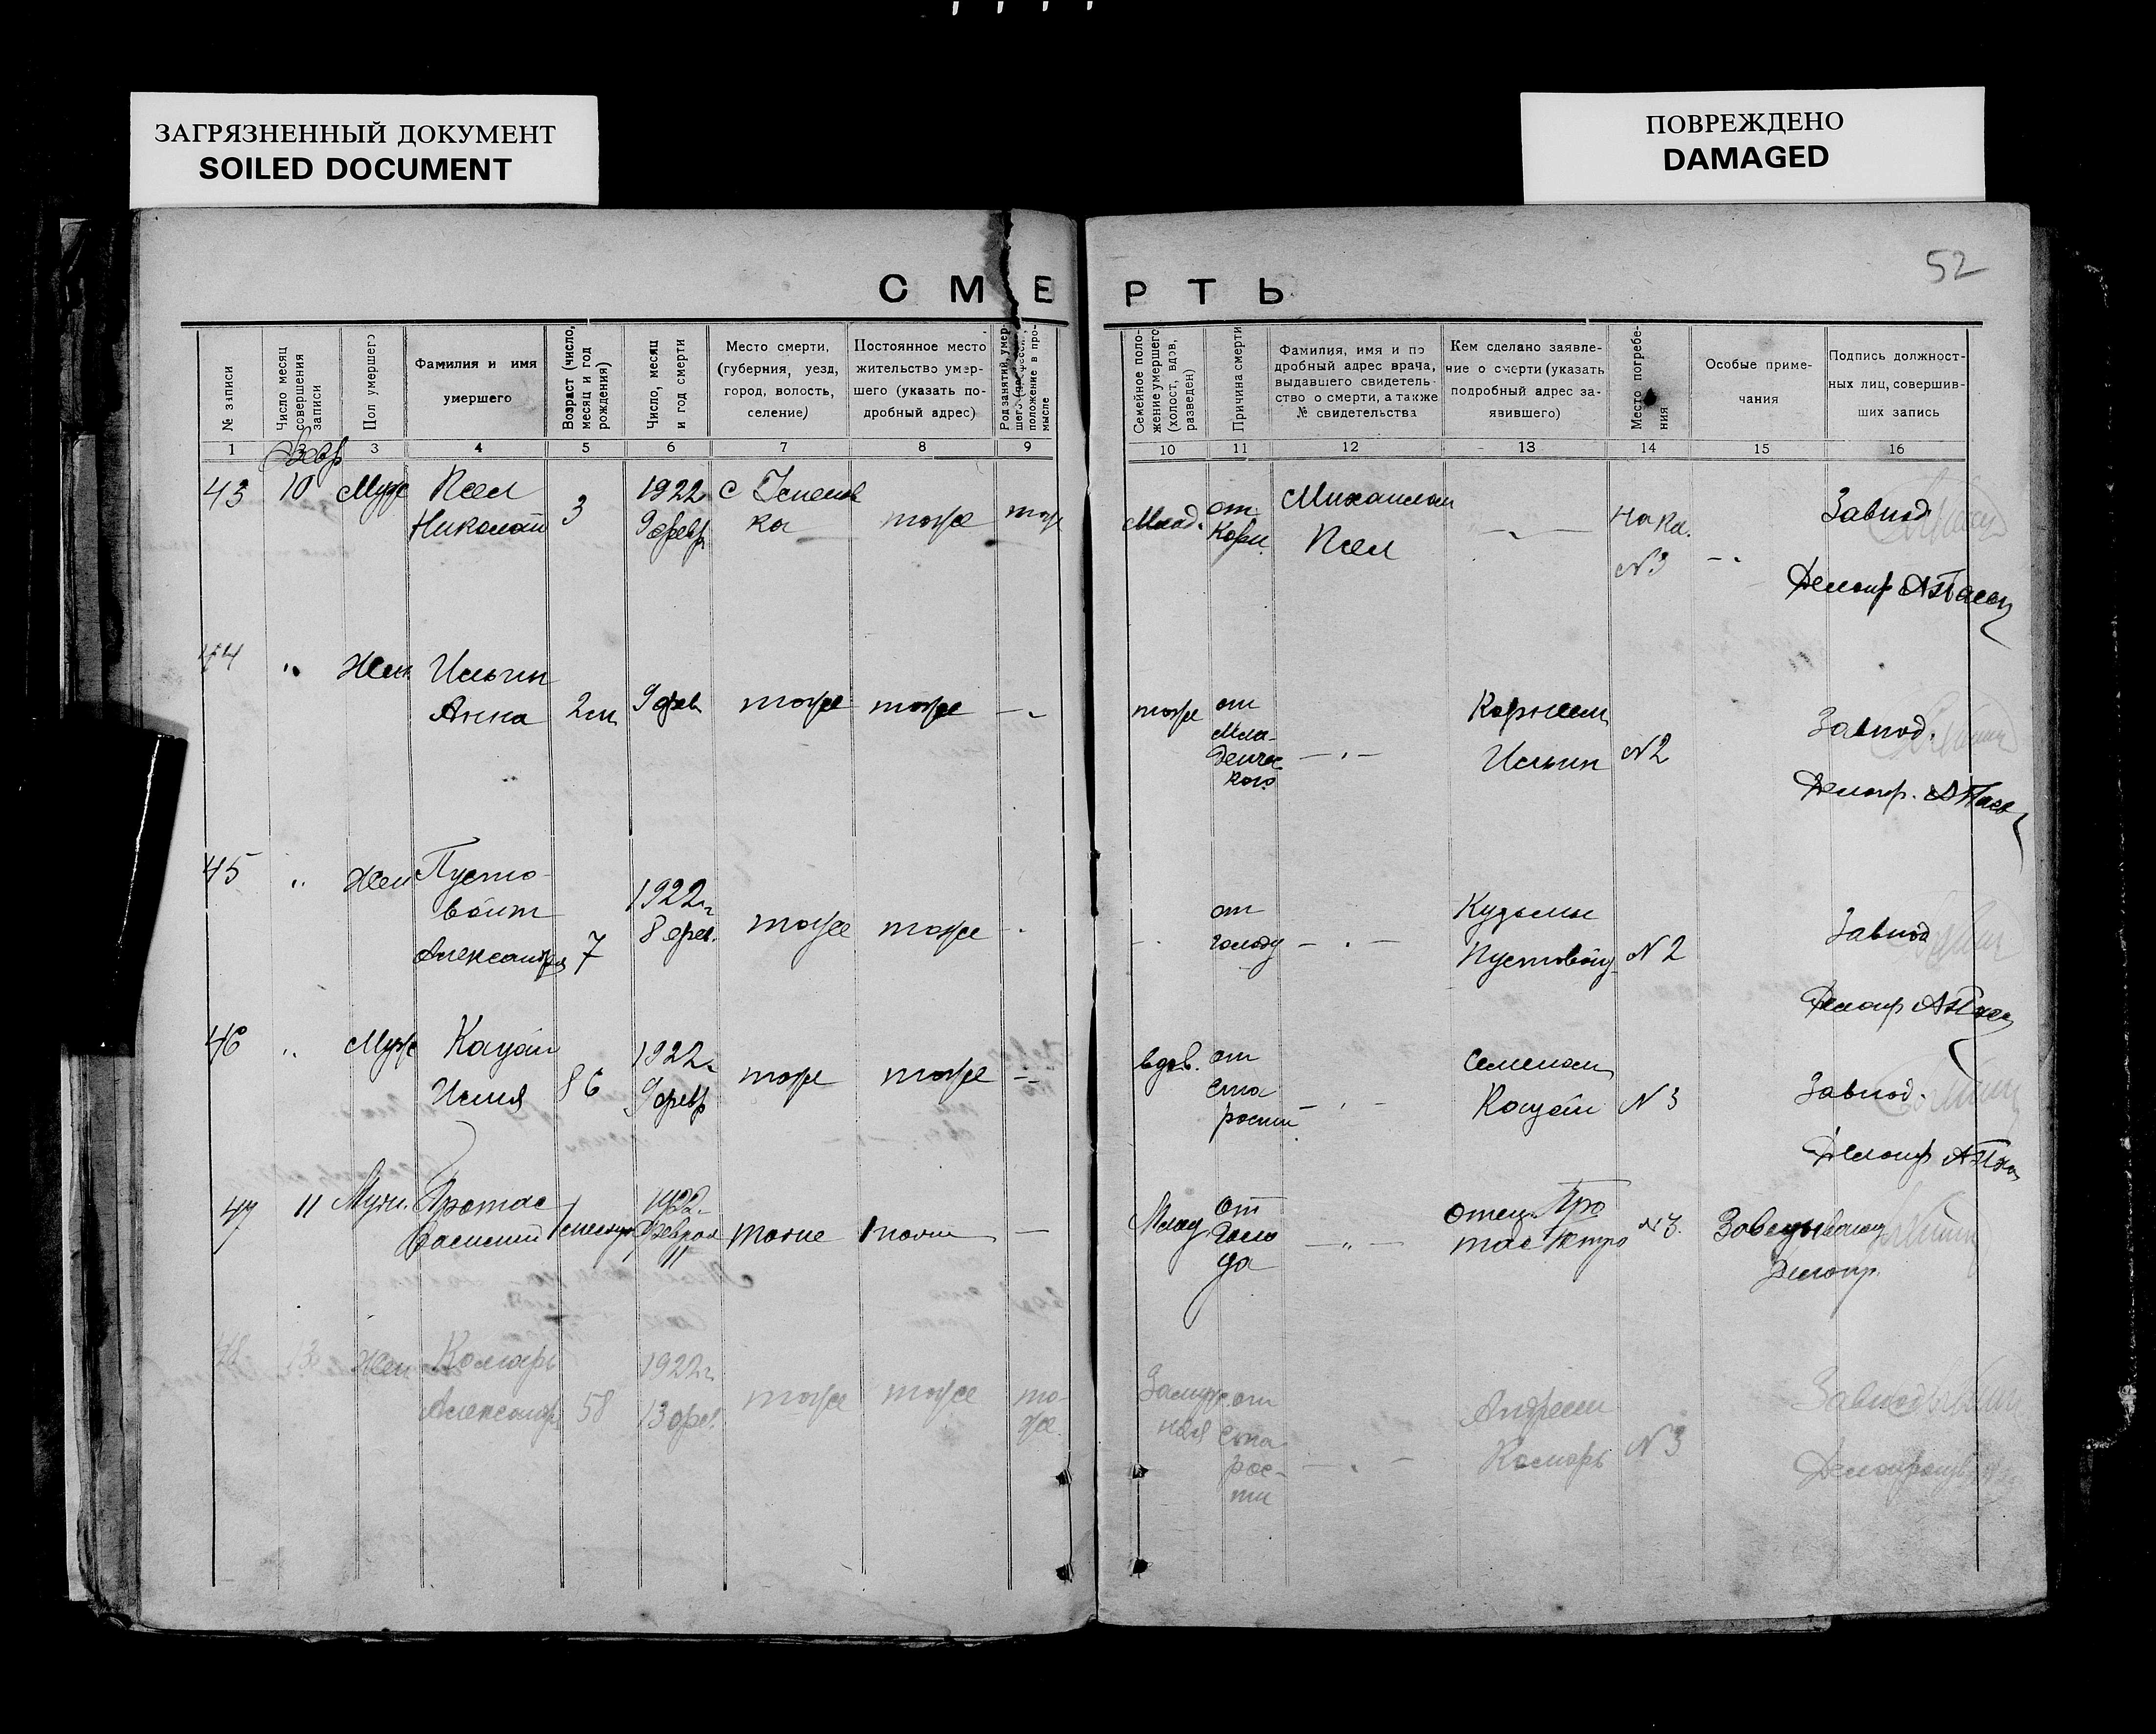 ЗАГРЯЗНЕННЫЙ ДОКУМЕНТ
SOILED DOCUMENT
ПОВРЕЖДЕНО
DAMAGED
52
СМЕРТЬ
№ записи
Число месяц совершения записи
Пол умершего
Фамилия и имя умершего
Возраст (число, месяц и год рождения)
Число, месяц и год смерти
Место смерти, (губерния, уезд, город, волость, селение)
Постоянное место жительство умершего (указать подробный адрес)
Род занятий, умершего положение в промысле
Семейное положение умершего (холост, вдов, разведен)
Причина смерти
Фамилия, имя и подробный адрес врача, выдавшего свидетельство о смерти, а также № свидетельства
Кем сделано заявление о смерти (указать подробный адрес заявившего)
Место погребения
Особые примечания
Подпись должностных лиц, совершивших запись
1 2 3 4 5 6 7 8 9 10 11 12 13 14 15 16
Февр
43 10 Муж Псел 1922 с Успенов Михаилом Завпод
Николай 3 9 февр ка тоже тож Млад. от Кори. Псел на кл. №3
Делопр
44 " Жен Ильин Корнеем Завпод.
Анна 2 м 9 фев тоже тоже тоже от Мла-
денчес
кого Ильин №2
Делопр.
45 " Жен Пусто-
войт 1922 г. от Кузьмы Завпод
Александра 7 8 фев. тоже тоже голоду Пустовойт №2
Делопр
46 " Муж Кацай 1922 г. вдов. от Семеном Завпод.
Илия 86 9 февр тоже тоже ста
рости Кацай №3
Делопр
47 11 Муж. Протас 1922 г. Млад. от Отец Про
Василий 1 месяц Февраля 11 тоже тоже — голо
да тас Петро №3. Заведывающ
Делопр.
48 13 Жен Комарь 1922 г. Замуж
ная от Андреем Завпод
Александр 58 13 фев. тоже тоже то-
же. ста
рос-
ти Комарь №3
Делопроизв